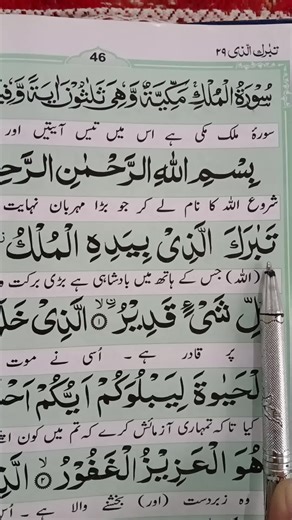 تبٰرک الذی ۲۹
46
سُوْرَةُ الْمُلْكِ مَكِّيَّةٌ وَّهِيَ ثَلٰثُوْنَ اٰيَةً
سورۂ ملک مکی ہے اس میں تیس آیتیں اور
بِسْمِ اللهِ الرَّحْمٰنِ
شروع اللہ کا نام لے کر جو بڑا مہربان نہایت
تَبٰرَكَ الَّذِىْ بِيَدِهِ الْمُلْكُ
(اللہ) جس کے ہاتھ میں بادشاہی ہے بڑی برکت
شَىْءٍ قَدِيْرُ ۙ﴿۱﴾ الَّذِىْ
پر قادر ہے ۔ اُسی نے موت
الْحَيٰوةَ لِيَبْلُوَكُمْ اَيُّكُمْ
کیا تاکہ تمہاری آزمائش کرے کہ تم میں کون
هُوَ الْعَزِيْزُ الْغَفُوْرُ ۙ﴿۲﴾
وہ زبردست (اور) بخشنے والا ہے ۔